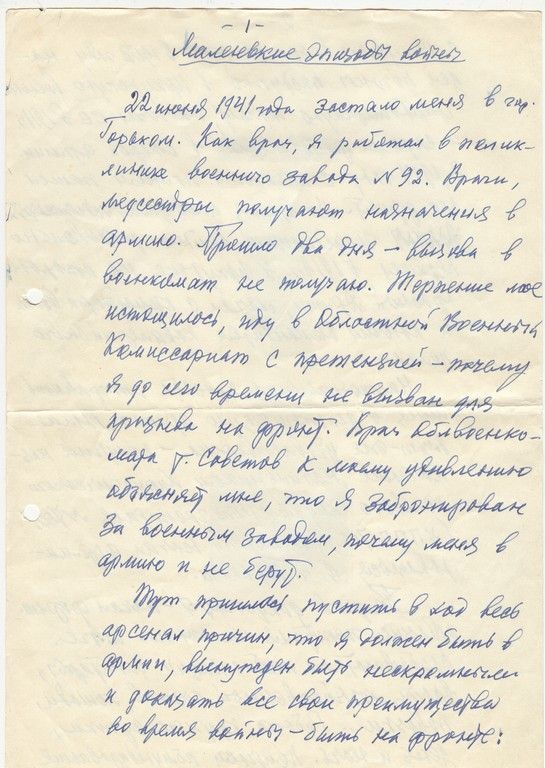 - 1 -
Маленькие эпизоды войны
22 июня 1941 года застало меня в гор.
Горьком. Как врач, я работал в полик-
линике военного завода N 92. Врачи,
медсестры получают назначения в
армию. Прошло два дня - вызова в
военкомат не получаю. Терпение мое
истощилось, иду в Областной Военный
Комиссариат с претензией - почему
я до сего времени не вызван для
призыва на фронт. Врач Облвоенко-
мата т. Советов к моему удивлению
объясняет мне, что я забронирован
за военным заводом, почему меня в
армию и не берут.
Тут пришлось пустить в ход весь
арсенал причин, что я должен быть в
армии, вынужден быть нескромным
и доказать все свои преимущества
во время войны - быть на фронте: